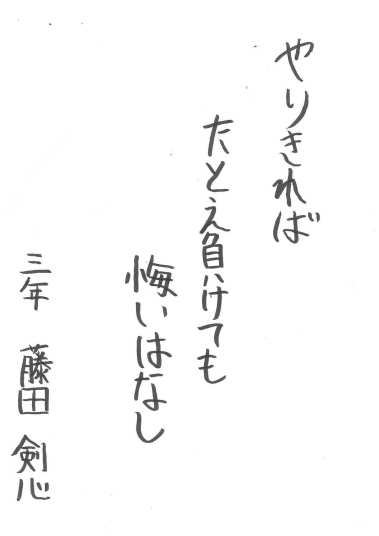 やりきれば
たとえ負けても
悔いはなし
三年 藤田 剣心